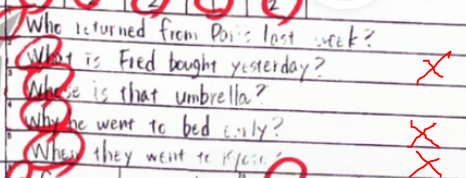 2 1 2
Who returned from Paris last week?
2 What is Fred bought yesterday?
3 Whose is that umbrella?
4 Why he went to bed early?
5 When they went to